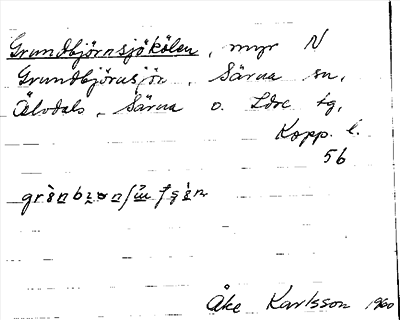 Grundbjörnsjökölen, myr N
Grundbjörnsjön, Särna sn,
Älvdals, Särna o. Idre tg,
Kopp. l.
5b
Åke Karlsson 1960